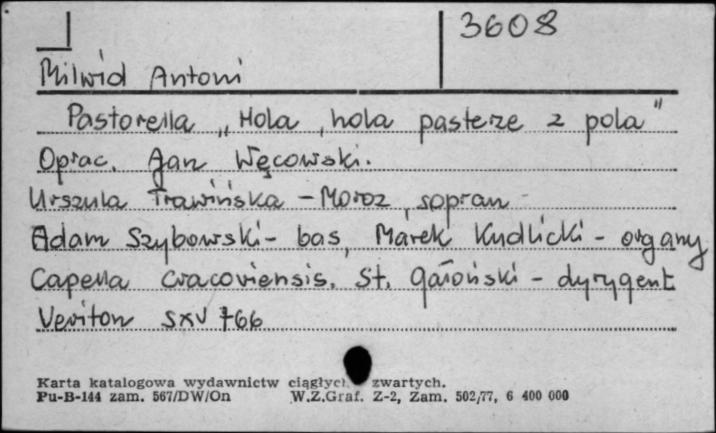 3608
Milwid Antoni
Pastorella „Hola, hola pasterze z pola"
Oprac. Jan Węcowski.
Urszula Trawińska-Moroz, sopran
Adam Szybowski - bas, Marek Kudlicki - organy
Capella Cracoviensis. St. Gałoński - dyrygent
Veriton SXV 766
Karta katalogowa wydawnictw ciągłych zwartych.
Pu-B-144 zam. 567/DW/On W.Z.Graf. Z-2, Zam. 502/77, 6 400 000